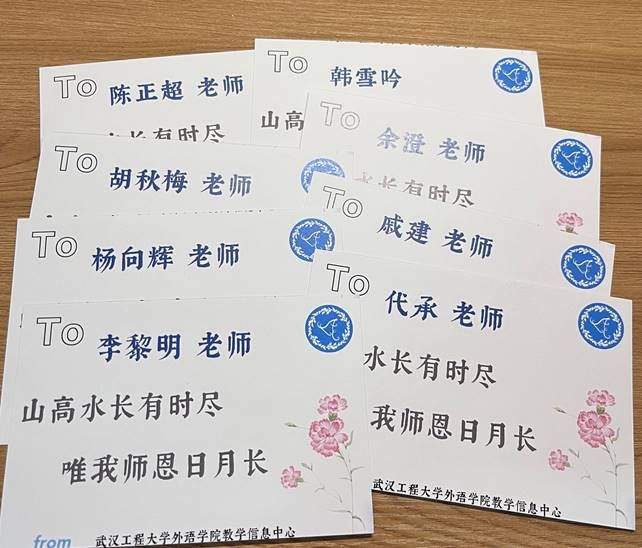 To 陈正超 老师
水长有时尽
To 韩雪吟
山高
To 余澄 老师
水长有时尽
To 胡秋梅 老师
To 戚建 老师
To 杨向辉 老师
To 代承 老师
水长有时尽
我师恩日月长
武汉工程大学外语学院教学信息中心
To 李黎明 老师
山高水长有时尽
唯我师恩日月长
from 武汉工程大学外语学院教学信息中心